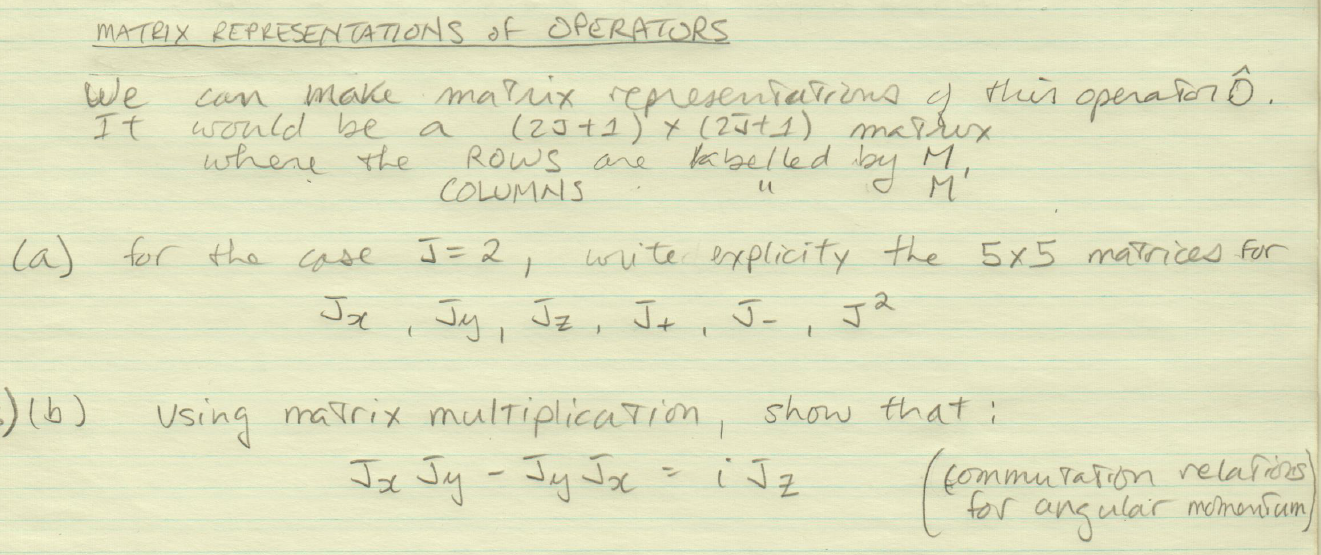 MATRIX REPRESENTATIONS OF OPERATORS
We can make matrix representations of this operator Ô.
It would be a (2J+1) × (2J+1) matrix
where the ROWS are labelled by M,
COLUMNS " M'
(a) for the case J=2, write explicity the 5x5 matrices for
Jx, Jy, Jz, J+, J-, J²
)(b) Using matrix multiplication, show that:
Jx Jy - Jy Jx = i Jz (commutation relations
for angular momentum)